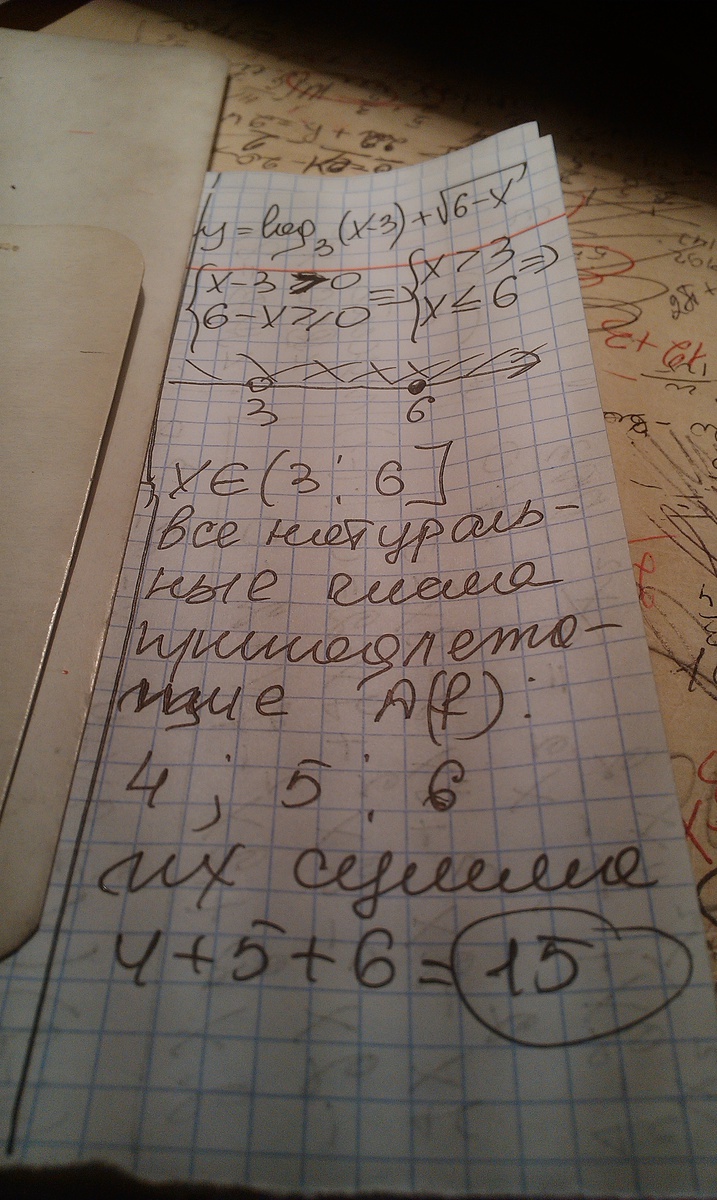 y = log₃(x-3) + √(6-x)
{x-3 > 0 => {x > 3 =>
{6-x ≥ 0 {x ≤ 6
3 6
x∈(3; 6]
все натураль-
ные числа
принадлежа-
щие Д(f):
4; 5; 6
их сумма
4+5+6=15